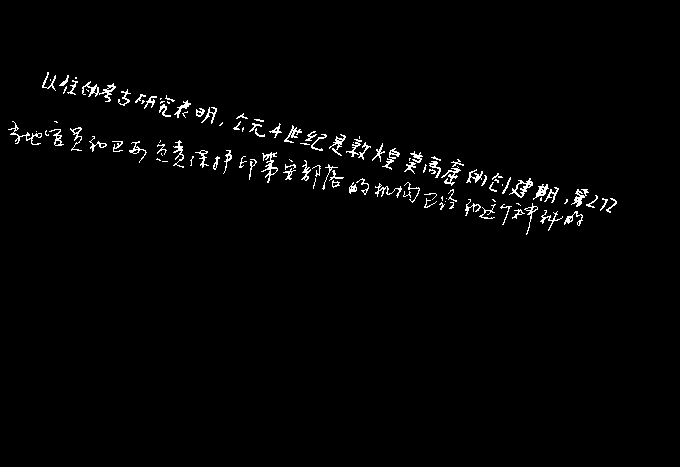 以往的考古研究表明，公元4世纪是敦煌莫高窟的创建期，第272
当地官员和巴西负责保护印第安部落的机构已经和这个神秘的